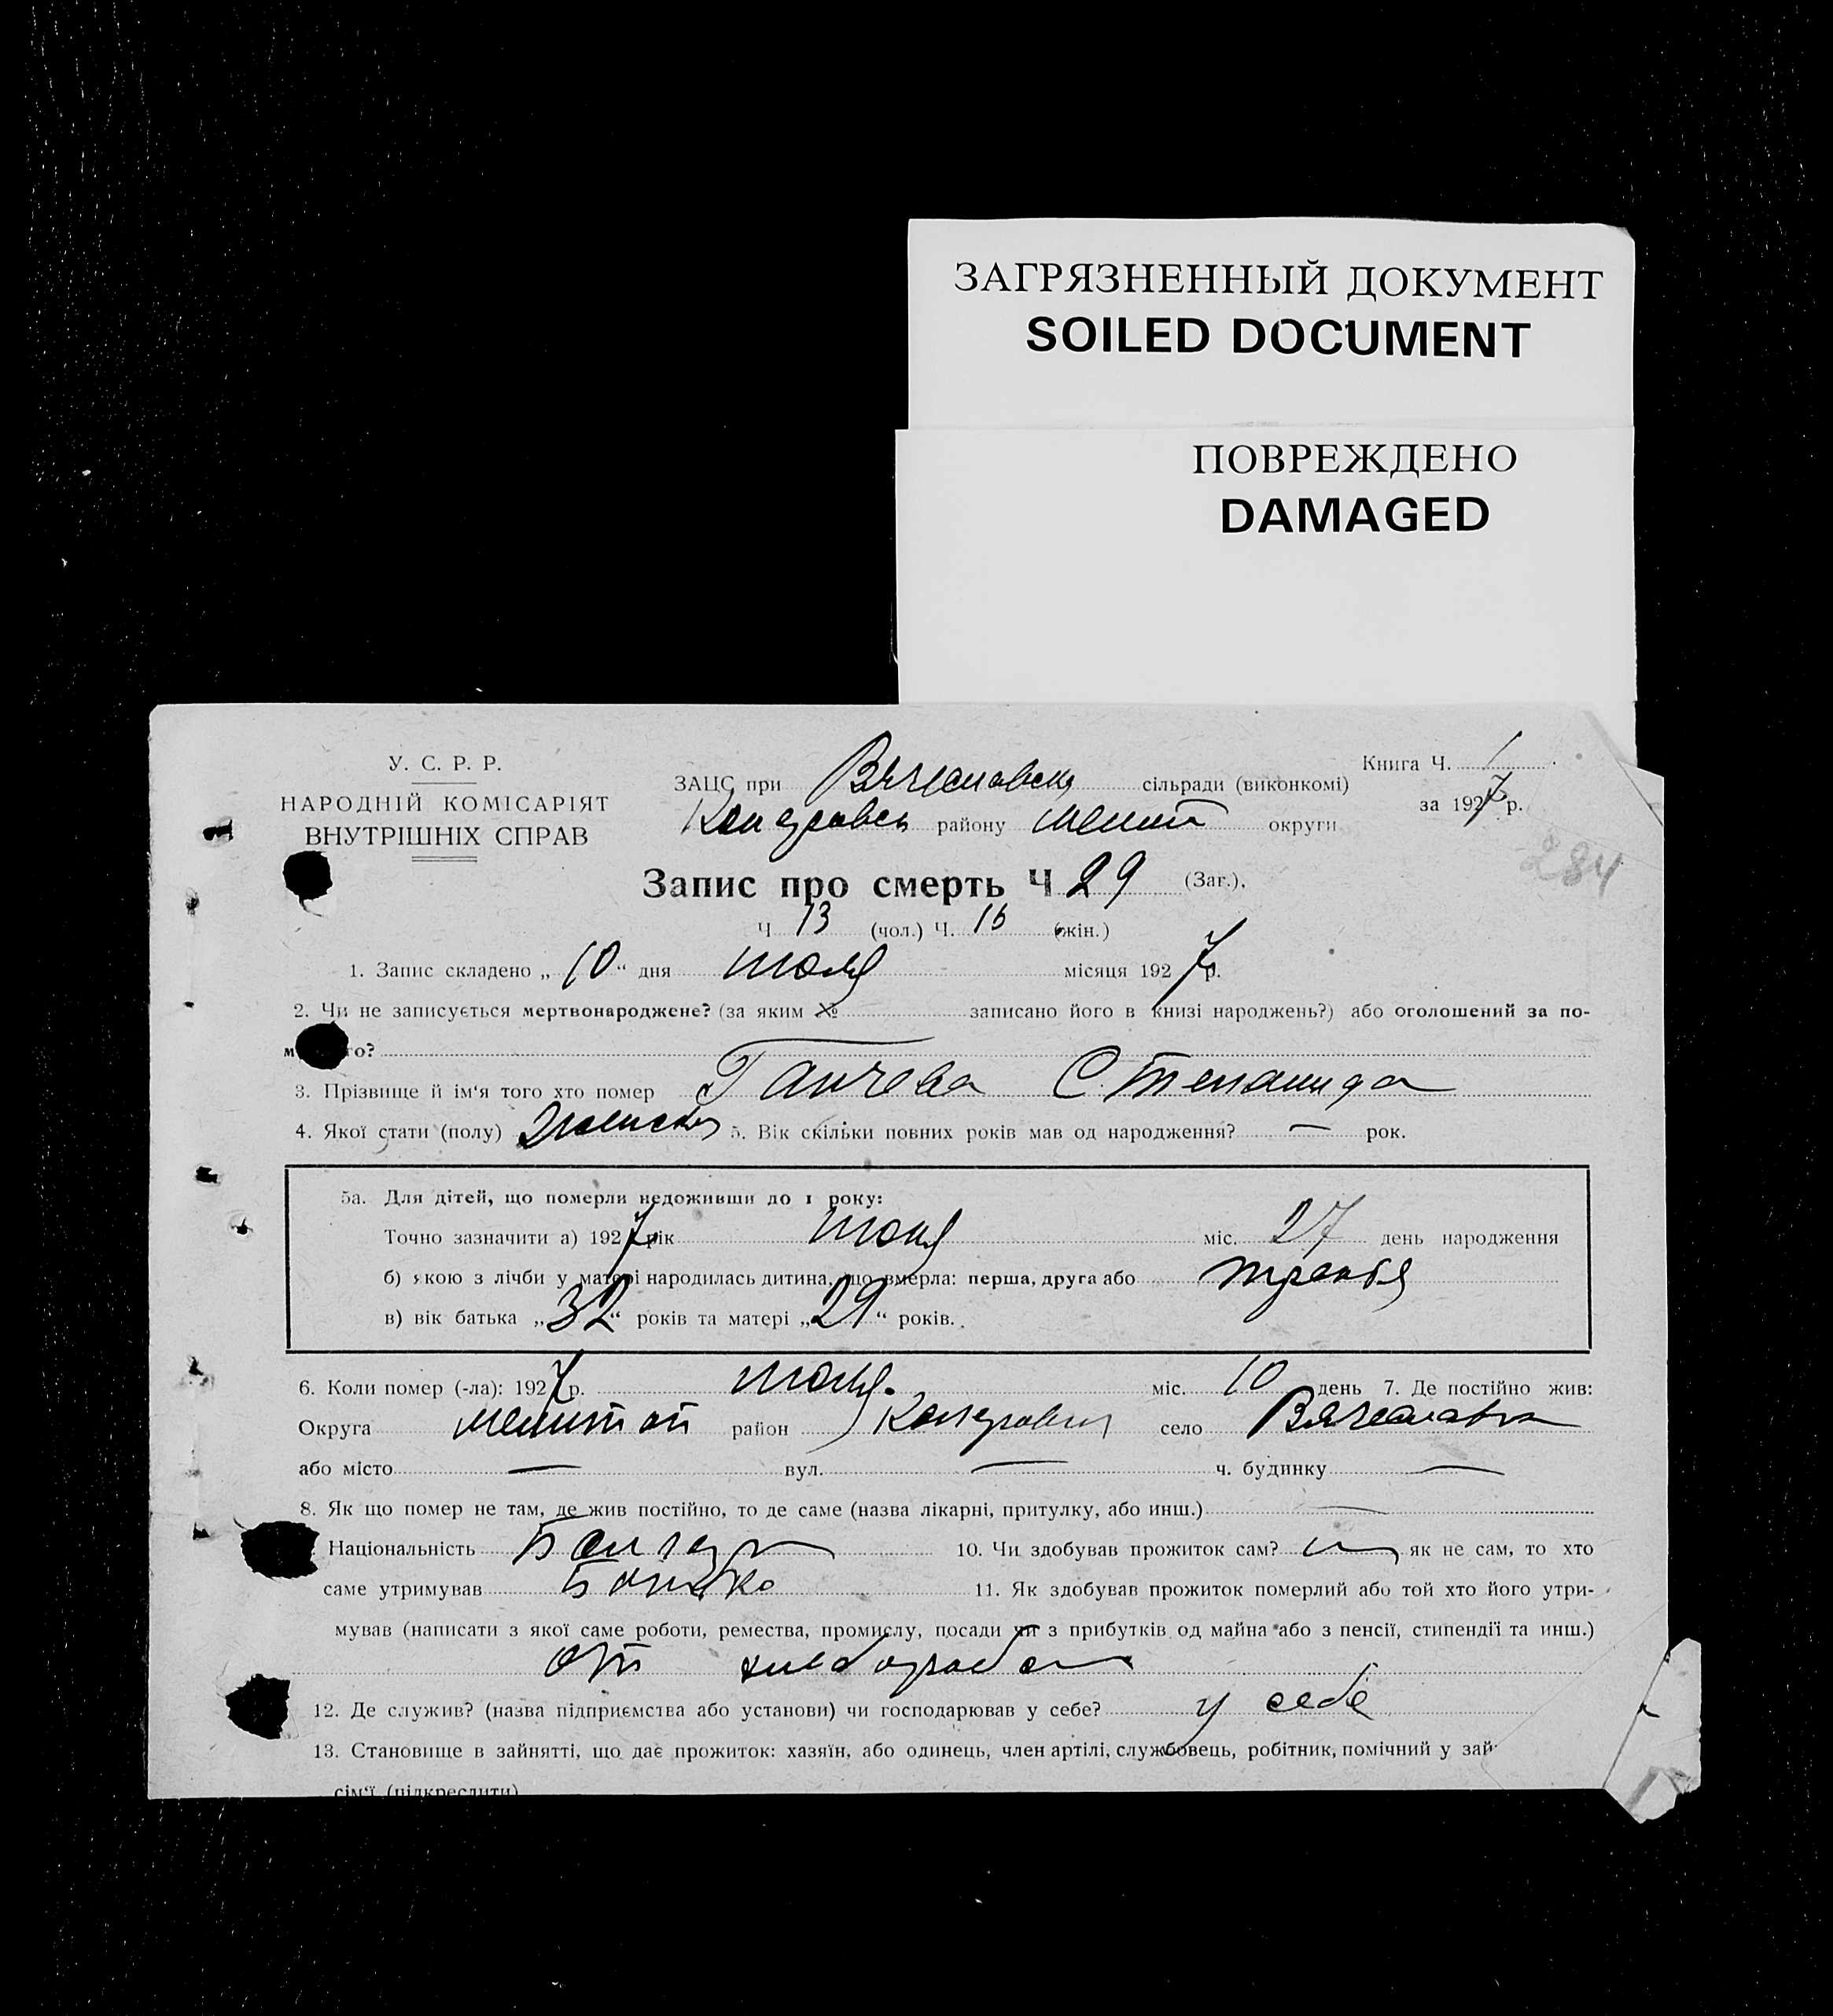 ЗАГРЯЗНЕННЫЙ ДОКУМЕНТ
SOILED DOCUMENT
ПОВРЕЖДЕНО
DAMAGED
У. С. Р. Р.
НАРОДНІЙ КОМІСАРІЯТ
ВНУТРІШНІХ СПРАВ
Книга Ч. 1
за 1927 р.
ЗАЦС при Вячеславск сільради (виконкомі)
району Мелит округи
284
Запис про смерть Ч 29 (Заг.).
Ч 13 (чол.) Ч. 16 (жін.)
1. Запис складено „ 10 “ дня июля місяця 1927 р.
2. Чи не записується мертвонароджене? (за яким № записано його в книзі народжень?) або оголошений за по-
го?
3. Прізвище й ім'я того хто помер Ганчева Степанида
4. Якої стати (полу) Женская 5. Вік скільки повних років мав од народження? — рок.
5а. Для дітей, що померли недоживши до 1 року:
Точно зазначити а) 1927 рік июня міс. 27 день народження
б) якою з лічби у матері народилась дитина, що вмерла: перша, друга або третья
в) вік батька „ 32 “ років та матері „ 29 “ років.
6. Коли помер (-ла): 1927 р. июля. міс. 10 день 7. Де постійно жив:
Округа Мелитоп район село Вячеславка
або місто — вул. — ч. будинку —
8. Як що помер не там, де жив постійно, то де саме (назва лікарні, притулку, або инш.) —
Національність Болгар 10. Чи здобував прожиток сам? як не сам, то хто
саме утримував Батько 11. Як здобував прожиток померлий або той хто його утри-
мував (написати з якої саме роботи, ремества, промислу, посади чи з прибутків од майна або з пенсії, стипендії та инш.)
От
12. Де служив? (назва підприємства або установи) чи господарював у себе? у себе
13. Становище в зайнятті, що дає прожиток: хазяїн, або одинець, член артілі, службовець, робітник, помічний у зай
сім'ї (підкреслити)